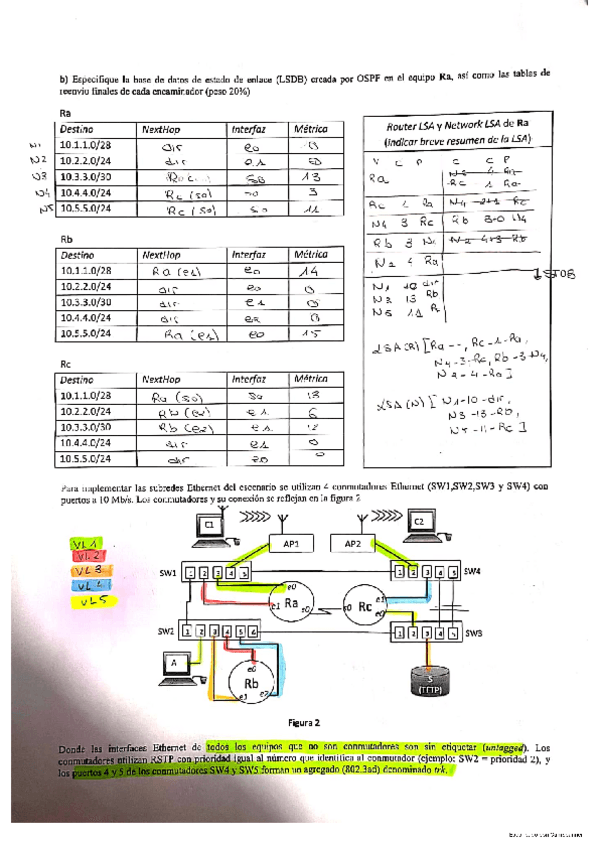 b) Especifique la base de datos de estado de enlace (LSDB) creada por OSPF en el equipo Ra, así como las tablas de
reenvío finales de cada encaminador (peso 20%)
Ra
Destino NextHop Interfaz Métrica
N1 10.1.1.0/28 dir e0 0
N2 10.2.2.0/24 dir e1 0
N3 10.3.3.0/30 s0 13
N4 10.4.4.0/24 Rc (s0) s0 3
N5 10.5.5.0/24 Rc (s0) s0 11
Rb
Destino NextHop Interfaz Métrica
10.1.1.0/28 Ra (e1) e0 14
10.2.2.0/24 dir e0 0
10.3.3.0/30 dir e1 0
10.4.4.0/24 dir e2 0
10.5.5.0/24 Ra (e1) e0 15
Rc
Destino NextHop Interfaz Métrica
10.1.1.0/28 Ra (s0) s0 13
10.2.2.0/24 Rb (e2) e1 6
10.3.3.0/30 Rb (e2) e1 12
10.4.4.0/24 dir e1 0
10.5.5.0/24 dir e0 0
Router LSA y Network LSA de Ra
(indicar breve resumen de la LSA)
V C P C C P
Ra
Rc 1 Ra
Rc 1 Ra
N4 3 Rc Rb 3-0 N4
Rb 3 N4
N2 4 Ra
N1 10 dir
N3 13 Rb
N5 11 Rc
LSA (R) [Ra --, Rc-1-Ra,
N4-3-Rc, Rb-3-N4,
N2-4-Ra]
LSA (N) [N1-10-dir,
N3-13-Rb,
N5-11-Rc]
Para implementar las subredes Ethernet del escenario se utilizan 4 conmutadores Ethernet (SW1,SW2,SW3 y SW4) con
puertos a 10 Mb/s. Los conmutadores y su conexión se reflejan en la figura 2
VL1
VL2
VL3
VL4
VL5
C1
C2
AP1
AP2
SW1 1 2 3 4 5
1 2 3 4 5 SW4
e0
e1 Ra s0
s0 Rc e1
e0
SW2 1 2 3 4 5 6
1 2 3 4 5 SW3
A
e0
Rb
e1 e2
S
(TFTP)
Figura 2
Donde las interfaces Ethernet de todos los equipos que no son conmutadores son sin etiquetar (untagged). Los
conmutadores utilizan RSTP con prioridad igual al número que identifica al conmutador (ejemplo: SW2 = prioridad 2), y
los puertos 4 y 5 de los conmutadores SW4 y SW5 forman un agregado (802.3ad) denominado trk.